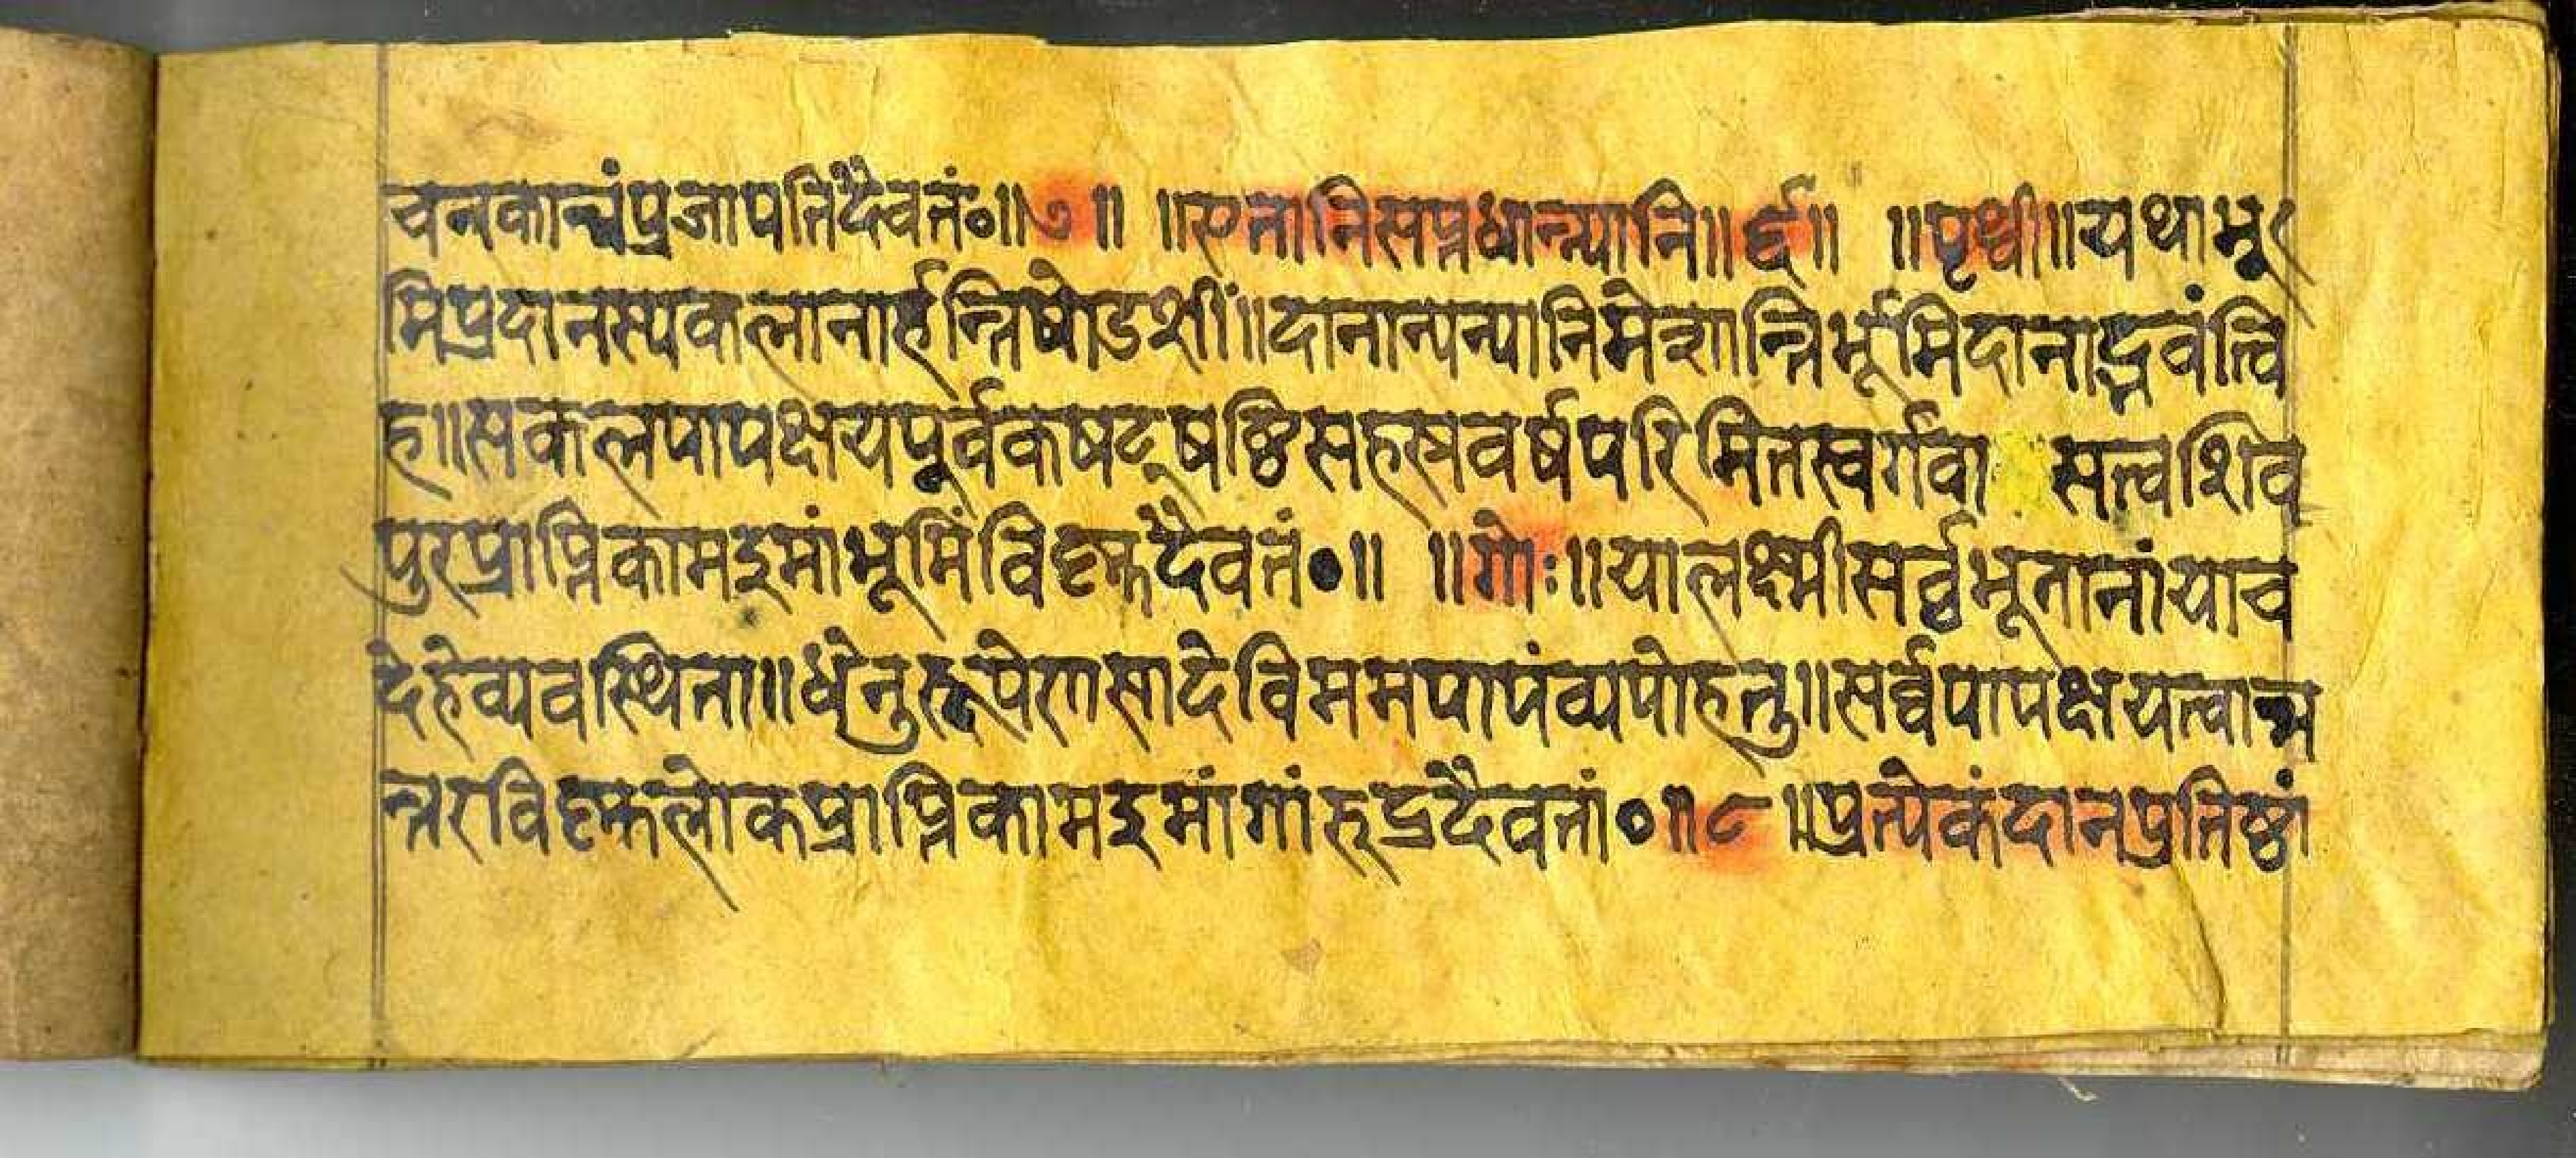 चनकान्नंप्रजापतिदैवतं०॥७॥ ॥एतानिसप्तधान्यानि॥ई॥ ॥पृथ्वी॥यथाभू
मिप्रदानस्यकलानार्हन्तिषोडशीं॥दानान्यन्यानिमेशान्तिर्भूमिदानाद्भवंत्वि
ह॥सकलपापक्षयपूर्वकषट्षष्ठिसहस्रवर्षपरिमितस्वर्गवा सत्वशिव
पुरप्राप्तिकामइमांभूमिंविष्णुदैवतं०॥ ॥गौः॥यालक्ष्मीसर्व्वभूतानांयाच
देहेव्यवस्थिता॥धेनुरूपेणसादेविममपापंव्यपोहतु॥सर्व्वपापक्षयत्वान्म
न्तरविष्णुलोकप्राप्तिकामइमांगांरुद्रदैवतां०॥८ ॥प्रत्येकंदानप्रतिष्ठां